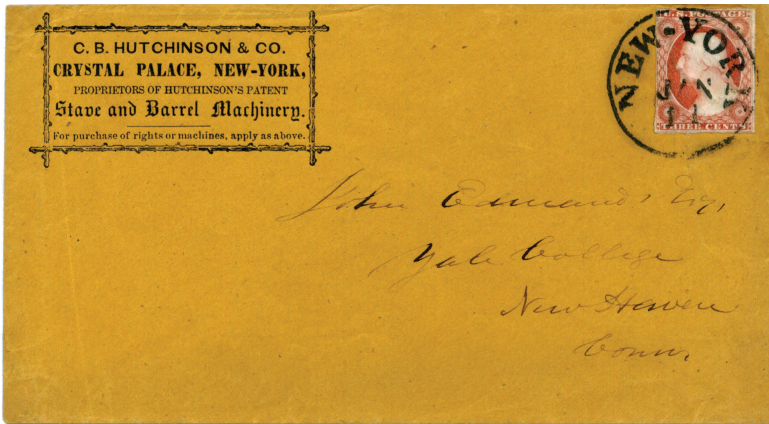 C. B. HUTCHINSON & CO.
CRYSTAL PALACE, NEW-YORK,
PROPRIETORS OF HUTCHINSON'S PATENT
Stave and Barrel Machinery.
For purchase of rights or machines, apply as above.
NEW-YORK
JAN
11
POSTAGE.
THREE CENTS
John Edmands Esq,
Yale College
New Haven
Conn,